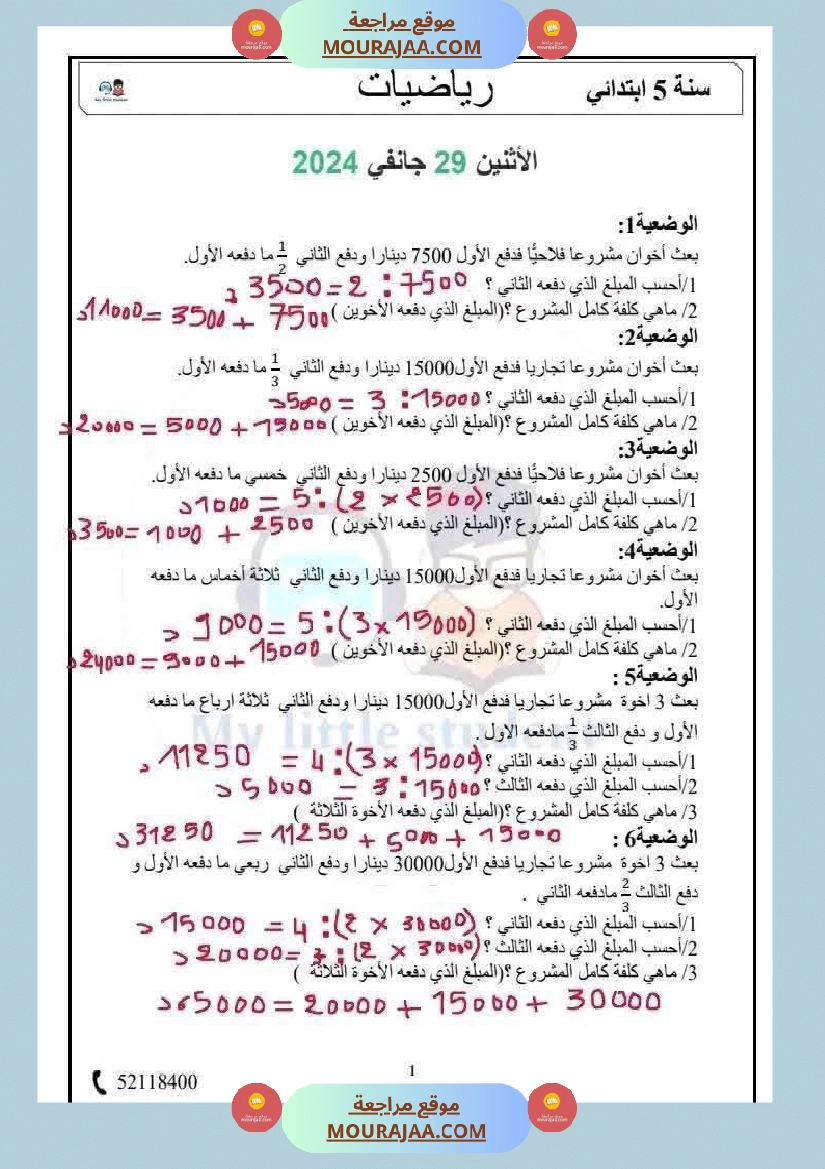 موقع مراجعة
MOURAJAA.COM
سنة 5 ابتدائي
رياضيات
الأثنين 29 جانفي 2024
الوضعية1:
بعث أخوان مشروعا فلاحيًّا فدفع الأول 7500 دينارا ودفع الثاني 1/2 ما دفعه الأول.
1/أحسب المبلغ الذي دفعه الثاني ؟ 7500 : 2 = 3500 د
2/ ماهي كلفة كامل المشروع ؟(المبلغ الذي دفعه الأخوين ) 7500 + 3500 = 11000د
الوضعية2:
بعث أخوان مشروعا تجاريا فدفع الأول15000 دينارا ودفع الثاني 1/3 ما دفعه الأول.
1/أحسب المبلغ الذي دفعه الثاني ؟ 15000 : 3 = 5000د
2/ ماهي كلفة كامل المشروع ؟(المبلغ الذي دفعه الأخوين ) 15000 + 5000 = 20000د
الوضعية3:
بعث أخوان مشروعا فلاحيًّا فدفع الأول 2500 دينارا ودفع الثاني خمسي ما دفعه الأول.
1/أحسب المبلغ الذي دفعه الثاني ؟ (2500 × 2) : 5 = 1000د
2/ ماهي كلفة كامل المشروع ؟(المبلغ الذي دفعه الأخوين ) 2500 + 1000 = 3500د
الوضعية4:
بعث أخوان مشروعا تجاريا فدفع الأول15000 دينارا ودفع الثاني ثلاثة أخماس ما دفعه
الأول.
1/أحسب المبلغ الذي دفعه الثاني ؟ (15000 × 3) : 5 = 9000 د
2/ ماهي كلفة كامل المشروع ؟(المبلغ الذي دفعه الأخوين ) 15000 + 9000 = 24000د
الوضعية5 :
بعث 3 اخوة مشروعا تجاريا فدفع الأول15000 دينارا ودفع الثاني ثلاثة ارباع ما دفعه
الأول و دفع الثالث 1/3 مادفعه الاول .
1/أحسب المبلغ الذي دفعه الثاني ؟ (15000 × 3) : 4 = 11250 د
2/أحسب المبلغ الذي دفعه الثالث ؟ 15000 : 3 = 5000 د
3/ ماهي كلفة كامل المشروع ؟(المبلغ الذي دفعه الأخوة الثلاثة )
15000 + 5000 + 11250 = 31250 د
الوضعية6 :
بعث 3 اخوة مشروعا تجاريا فدفع الأول30000 دينارا ودفع الثاني ربعي ما دفعه الأول و
دفع الثالث 2/3 مادفعه الثاني .
1/أحسب المبلغ الذي دفعه الثاني ؟ (30000 × 2) : 4 = 15000 د
2/أحسب المبلغ الذي دفعه الثالث ؟ (30000 × 2) : 3 = 20000 د
3/ ماهي كلفة كامل المشروع ؟(المبلغ الذي دفعه الأخوة الثلاثة )
30000 + 15000 + 20000 = 65000 د
My little student
1
52118400
موقع مراجعة
MOURAJAA.COM